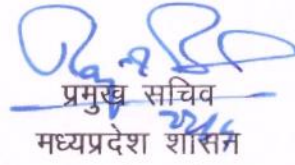 प्रमुख सचिव
मध्यप्रदेश शासन